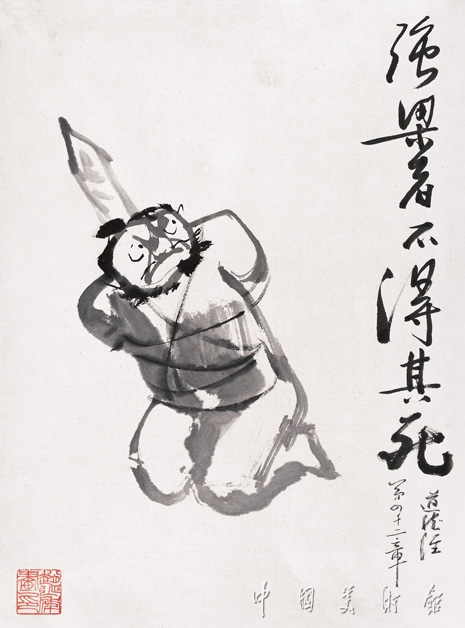 強梁者不得其死
道德經
第四十二章
中國美術館